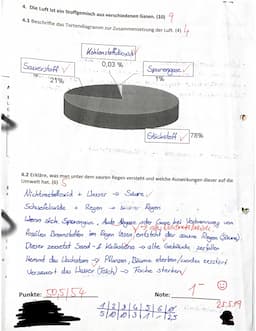 4. Die Luft ist ein Stoffgemisch aus verschiedenen Gasen. (10) 9
4.1 Beschrifte das Tortendiagramm zur Zusammensetzung der Luft. (4) 4
Kohlenstoffdioxid
Sauerstoff
0,03 %
Spurengase
21%
1%
Stickstoff
78%
4.2 Erkläre, was man unter dem sauren Regen versteht und welche Auswirkungen dieser auf die
Umwelt hat. (6) 5
Nichtmetalloxid + Wasser → Säure
+ Regen → saurer Regen
Wenn sich Spurengase, Auto
bei Verbrennung von
fossilen Brennstoffen im Regen lösen, entsteht der saure Regen (Säure)
Dieser zersetzt Sand- & Kalksteine → alte Gebäude zerfallen
Hemmt das Wachstum → Pflanzen, Bäume sterben/werden zerstört
Versauert das Wasser (Teich) → Fische sterben
Punkte: 50,5/54
Note: 1-
1 2 3 4 5 6
25.5.19